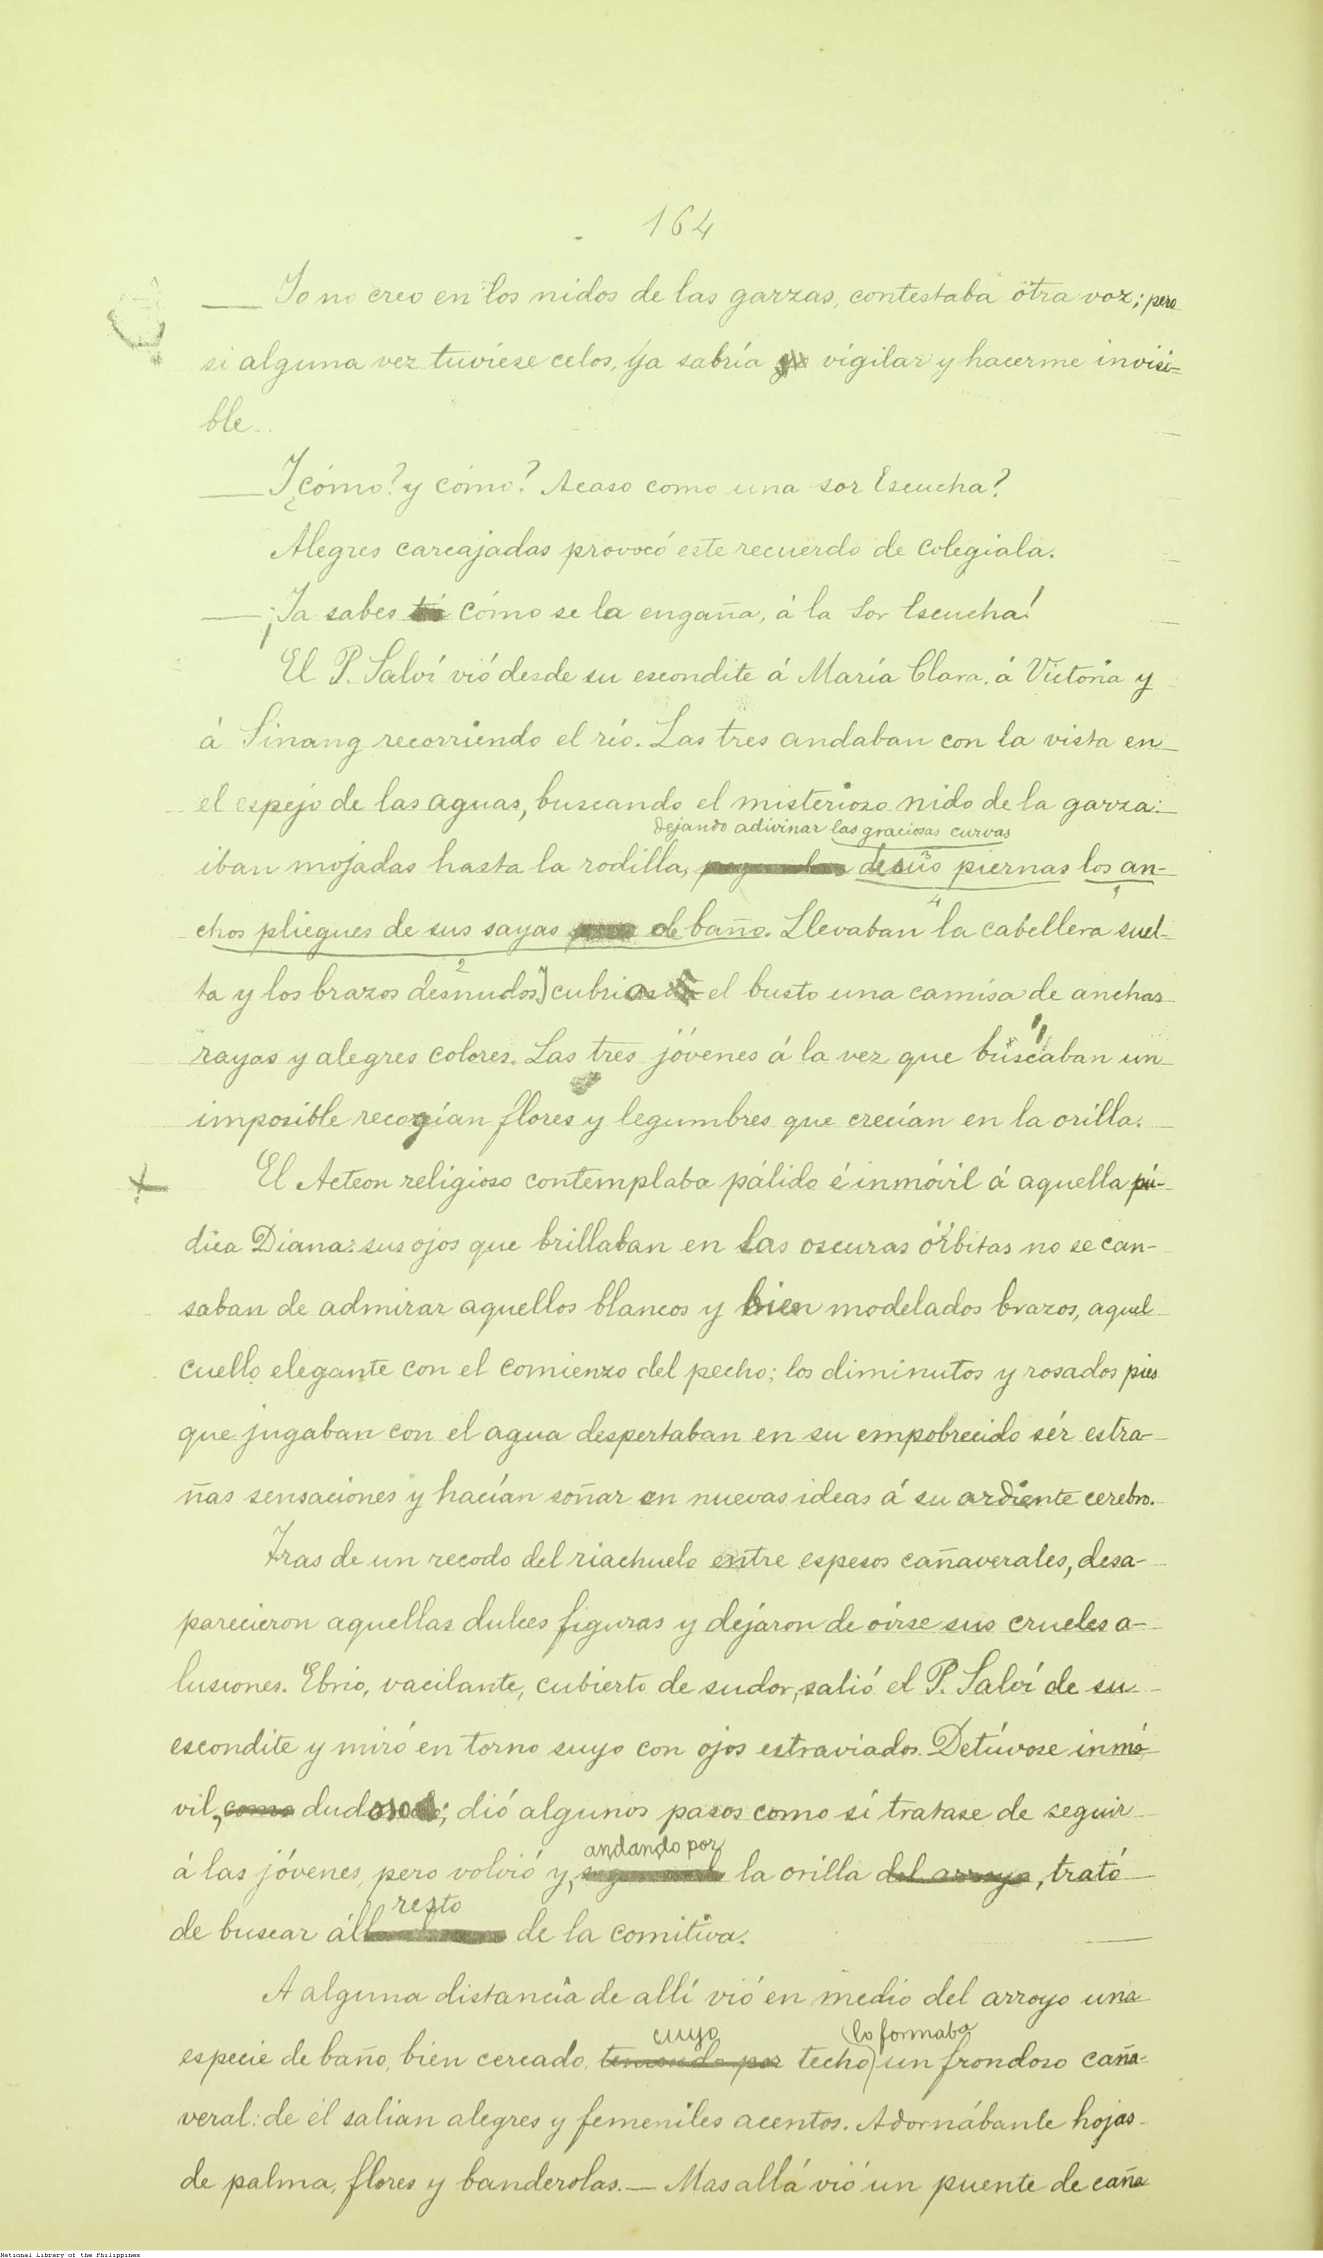 164
— Yo no creo en los nidos de las garzas, contestaba otra voz; pero
si alguna vez tuviese celos, ya sabría vigilar y hacerme invisi-
ble..
— Y ¿cómo? y cómo? Acaso como una sor Escucha?
Alegres carcajadas provocó este recuerdo de colegiala.
— ¡Ya sabes cómo se la engaña, á la Sor Escucha!
El P. Salví vió desde su escondite á María Clara, á Victoria y
á Sinang recorriendo el río. Las tres andaban con la vista en
el espejo de las aguas, buscando el misterioso nido de la garza:
dejando adivinar las graciosas curvas
iban mojadas hasta la rodilla, de sus piernas los an-
3
1
4
chos pliegues de sus sayas de baño. Llevaban la cabellera suel-
2
ta y los brazos desnudos] cubría el busto una camisa de anchas
rayas y alegres colores. Las tres jóvenes á la vez que buscaban un
imposible recogían flores y legumbres que crecían en la orilla.
El Acteon religioso contemplaba pálido é inmóvil á aquella pú-
dica Diana: sus ojos que brillaban en las oscuras órbitas no se can-
saban de admirar aquellos blancos y bien modelados brazos, aquel
cuello elegante con el comienzo del pecho; los diminutos y rosados pies
que jugaban con el agua despertaban en su empobrecido sér estra-
ñas sensaciones y hacían soñar en nuevas ideas á su ardiente cerebro.
Tras de un recodo del riachuelo entre espesos cañaverales, desa-
parecieron aquellas dulces figuras y dejaron de oirse sus crueles a-
lusiones. Ebrio, vacilante, cubierto de sudor, salió el P. Salví de su
escondite y miró en torno suyo con ojos estraviados. Detúvose inmó
vil, como dudoso; dió algunos pasos como si tratase de seguir
andando por
á las jóvenes, pero volvió y, la orilla del arroyo, trató
resto
de buscar al de la comitiva.
A alguna distancia de allí vió en medio del arroyo una
cuyo lo formaba
especie de baño, bien cercado, teniendo por techo) un frondoso caña-
veral: de él salian alegres y femeniles acentos. Adornábanle hojas
de palma, flores y banderolas. — Mas allá vió un puente de caña
National Library of the Philippines